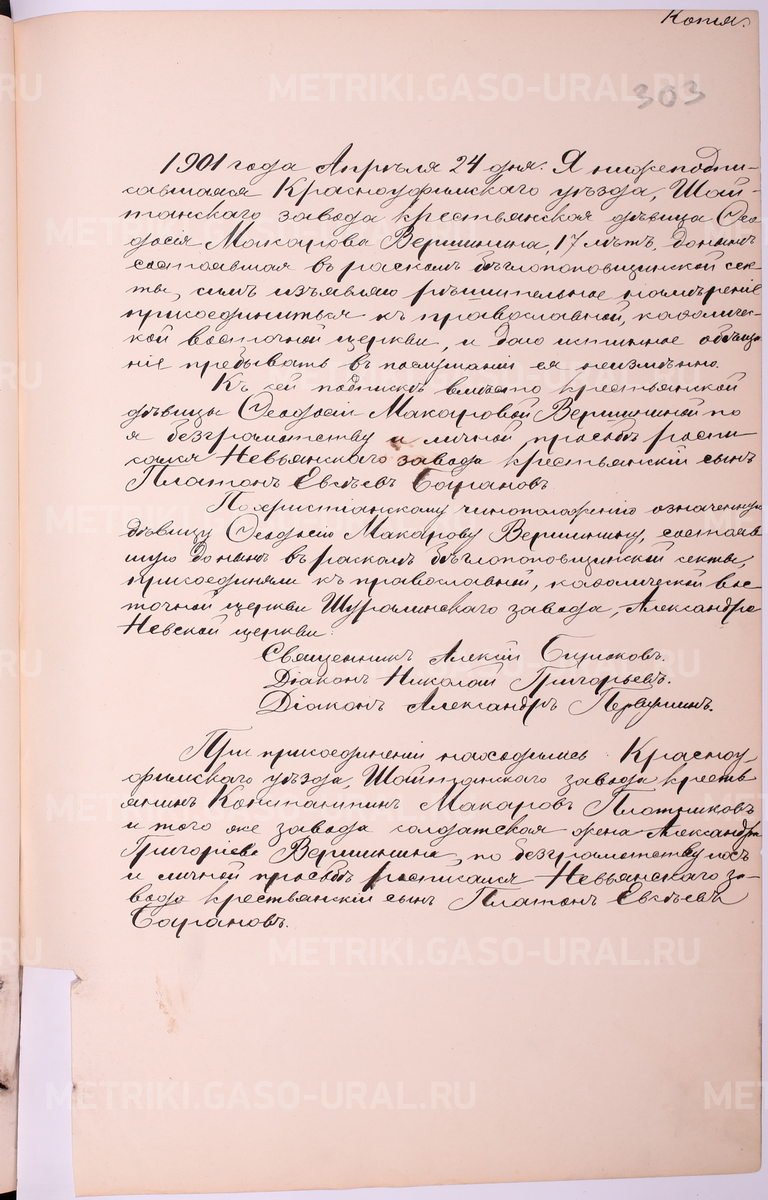 Копія.
303
1901 года Апрѣля 24 дня. Я нижеподпи-
савшаяся Красноуфимскаго уѣзда, Шай-
танскаго завода крестьянская дѣвица Ѳео-
досія Макарова Вершинина, 17 лѣтъ, донынѣ
состоявшая въ расколѣ бѣглопоповщинской сек-
ты, симъ изъявляю рѣшительное намѣреніе
присоединиться къ православной, каѳоличес-
кой восточной церкви, и даю истинное обѣща
ніе пребывать въ послушаніи ея неизмѣнно.
Къ сей подпискѣ вмѣсто крестьянской
дѣвицы Ѳеодосіи Макаровой Вершининой по
я безграмотству и личной просьбѣ распи
сался Невьянскаго завода крестьянскій сынъ
Платонъ Евсѣевъ Барановъ.
По христіанскому чиноположенію означенную
дѣвицу Ѳеодосію Макарову Вершинину, состояв
шую донынѣ въ расколѣ бѣглопоповщинской секты,
присоединяли къ православной, каѳолической вос
точной церкви Шуралинскаго завода, Александро
Невской церкви:
Священникъ Алексій Бирюковъ.
Діаконъ Николай Григорьевъ.
Діаконъ Александръ Первушинъ.
При присоединеніи находились: Красноу-
фимскаго уѣзда, Шайтанскаго завода кресть
янинъ Константинъ Макаровъ Плотниковъ
и того же завода солдатская жена Александра
Григорьева Вершинина, по безграмотству ихъ
и личной просьбѣ расписался Невьянскаго за-
вода крестьянскій сынъ Платонъ Евсѣевъ
Барановъ.
METRIKI.GASO-URAL.RU